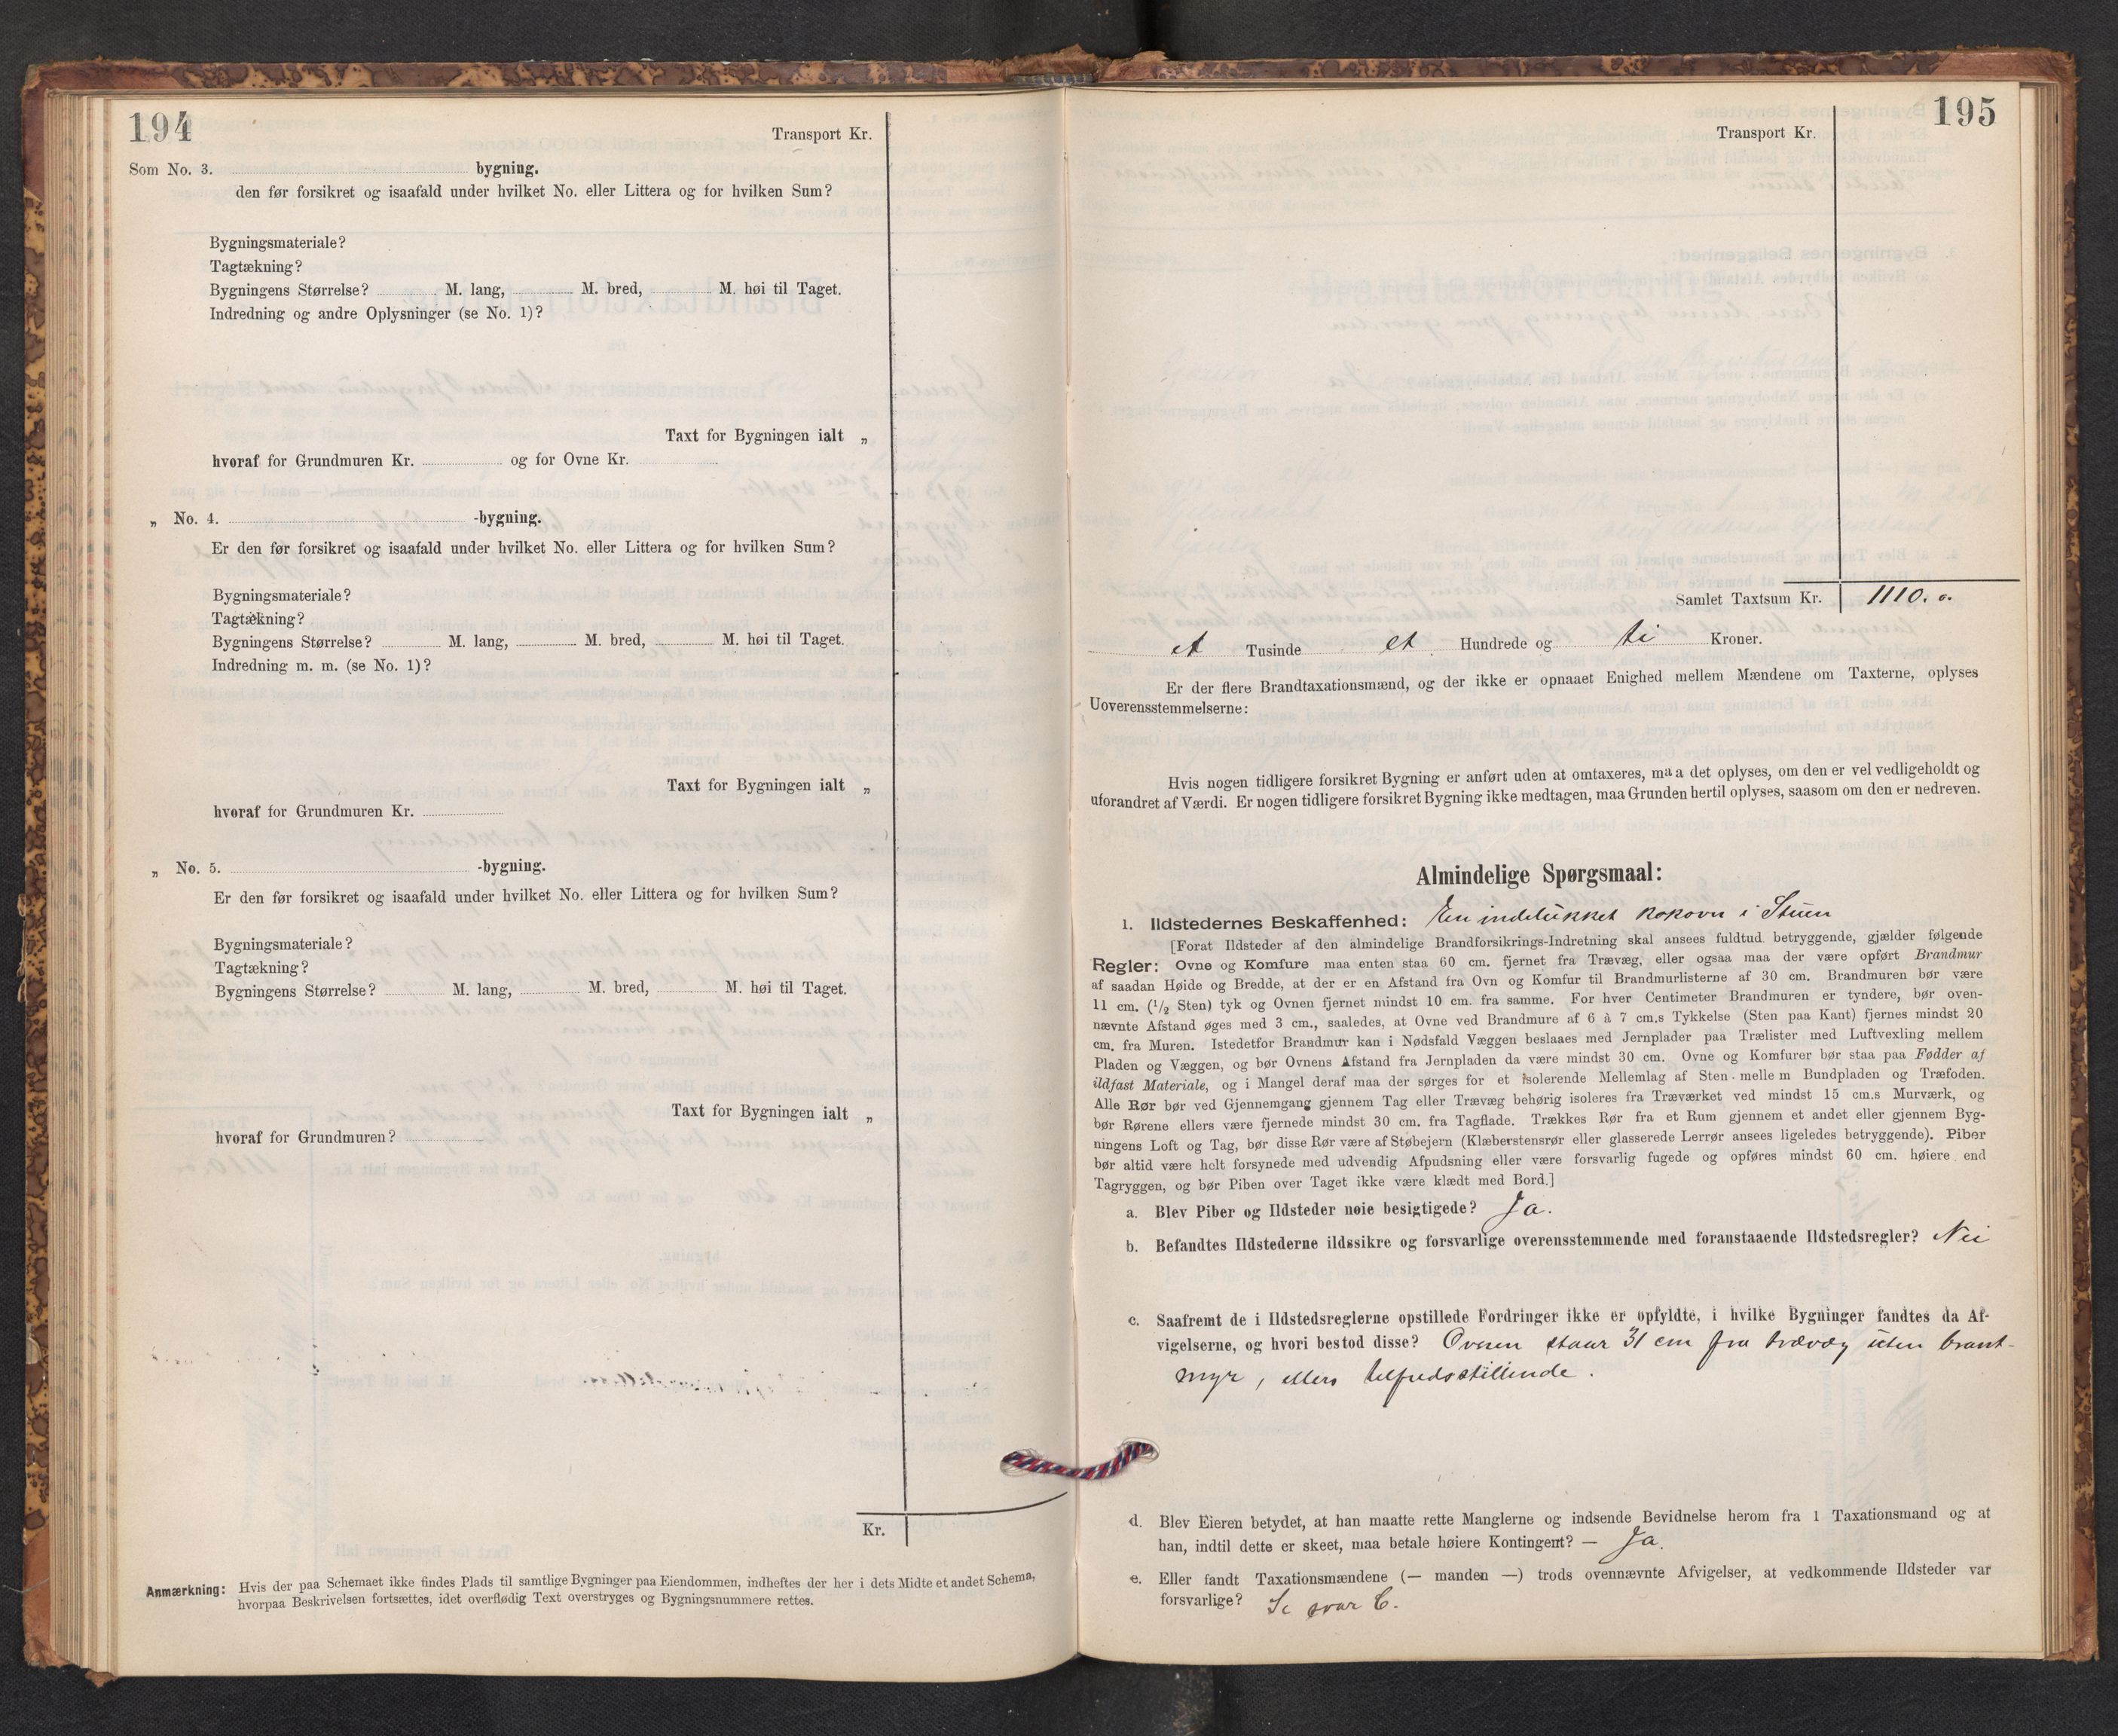 194
Transport Kr.
Som No. 3. bygning.
den før forsikret og isaafald under hvilket No. eller Littera og for hvilken Sum?
Bygningsmateriale?
Tagtækning?
Bygningens Størrelse? M. lang, M. bred, M. høi til Taget.
Indredning og andre Oplysninger (se No. 1)?
Taxt for Bygningen ialt „
hvoraf for Grundmuren Kr. og for Ovne Kr.
„ No. 4. -bygning.
Er den før forsikret og isaafald under hvilket No. eller Littera og for hvilken Sum?
Bygningsmateriale?
Tagtækning?
Bygningens Størrelse? M. lang, M. bred, M. høi til Taget.
Indredning m. m. (se No. 1)?
Taxt for Bygningen ialt „
hvoraf for Grundmuren Kr.
„ No. 5. -bygning.
Er den før forsikret og isaafald under hvilket No. eller Littera og for hvilken Sum?
Bygningsmateriale?
Tagtækning?
Bygningens Størrelse? M. lang, M. bred, M. høi til Taget.
Taxt for Bygningen ialt „
hvoraf for Grundmuren?
Kr.
Anmærkning: Hvis der paa Schemaet ikke findes Plads til samtlige Bygninger paa Eiendommen, indheftes der her i dets Midte et andet Schema,
hvorpaa Beskrivelsen fortsættes, idet overflødig Text overstryges og Bygningsnummere rettes.
195
Transport Kr.
Samlet Taxtsum Kr. 1110. o.
et Tusinde et Hundrede og ti Kroner.
Er der flere Brandtaxationsmænd, og der ikke er opnaaet Enighed mellem Mændene om Taxterne, oplyses
Uoverensstemmelserne:
Hvis nogen tidligere forsikret Bygning er anført uden at omtaxeres, maa det oplyses, om den er vel vedligeholdt og
uforandret af Værdi. Er nogen tidligere forsikret Bygning ikke medtagen, maa Grunden hertil oplyses, saasom om den er nedreven.
Almindelige Spørgsmaal:
1. Ildstedernes Beskaffenhed: En indelukket kokovn i Stuen
[Forat Ildsteder af den almindelige Brandforsikrings-Indretning skal ansees fuldtud betryggende, gjælder følgende
Regler: Ovne og Komfure maa enten staa 60 cm. fjernet fra Trævæg, eller ogsaa maa der være opført Brandmur
af saadan Høide og Bredde, at der er en Afstand fra Ovn og Komfur til Brandmurlisterne af 30 cm. Brandmuren bør være
11 cm. (1/2 Sten) tyk og Ovnen fjernet mindst 10 cm. fra samme. For hver Centimeter Brandmuren er tyndere, bør oven-
nævnte Afstand øges med 3 cm., saaledes, at Ovne ved Brandmure af 6 à 7 cm.s Tykkelse (Sten paa Kant) fjernes mindst 20
cm. fra Muren. Istedetfor Brandmur kan i Nødsfald Væggen beslaaes med Jernplader paa Trælister med Luftvexling mellem
Pladen og Væggen, og bør Ovnens Afstand fra Jernpladen da være mindst 30 cm. Ovne og Komfurer bør staa paa Fødder af
ildfast Materiale, og i Mangel deraf maa der sørges for et isolerende Mellemlag af Sten mellem Bundpladen og Træfoden.
Alle Rør bør ved Gjennemgang gjennem Tag eller Trævæg behørig isoleres fra Træværket ved mindst 15 cm.s Murværk, og
bør Rørene ellers være fjernede mindst 30 cm. fra Tagflade. Trækkes Rør fra et Rum gjennem et andet eller gjennem Byg-
ningens Loft og Tag, bør disse Rør være af Støbejern (Klæberstensrør eller glasserede Lerrør ansees ligeledes betryggende). Piber
bør altid være helt forsynede med udvendig Afpudsning eller være forsvarlig fugede og opføres mindst 60 cm. høiere end
Tagryggen, og bør Piben over Taget ikke være klædt med Bord.]
a. Blev Piber og Ildsteder nøie besigtigede? Ja.
b. Befandtes Ildstederne ildssikre og forsvarlige overensstemmende med foranstaaende Ildstedsregler? Nei
c. Saafremt de i Ildstedsreglerne opstillede Fordringer ikke er opfyldte, i hvilke Bygninger fandtes da Af-
vigelserne, og hvori bestod disse? Ovnen staar 31 cm fra trævæg uten brant-
myr, ellers tilfredsstillende.
d. Blev Eieren betydet, at han maatte rette Manglerne og indsende Bevidnelse herom fra 1 Taxationsmand og at
han, indtil dette er skeet, maa betale høiere Kontingent? — Ja.
e. Eller fandt Taxationsmændene (— manden —) trods ovennævnte Afvigelser, at vedkommende Ildsteder var
forsvarlige? Se svar C.